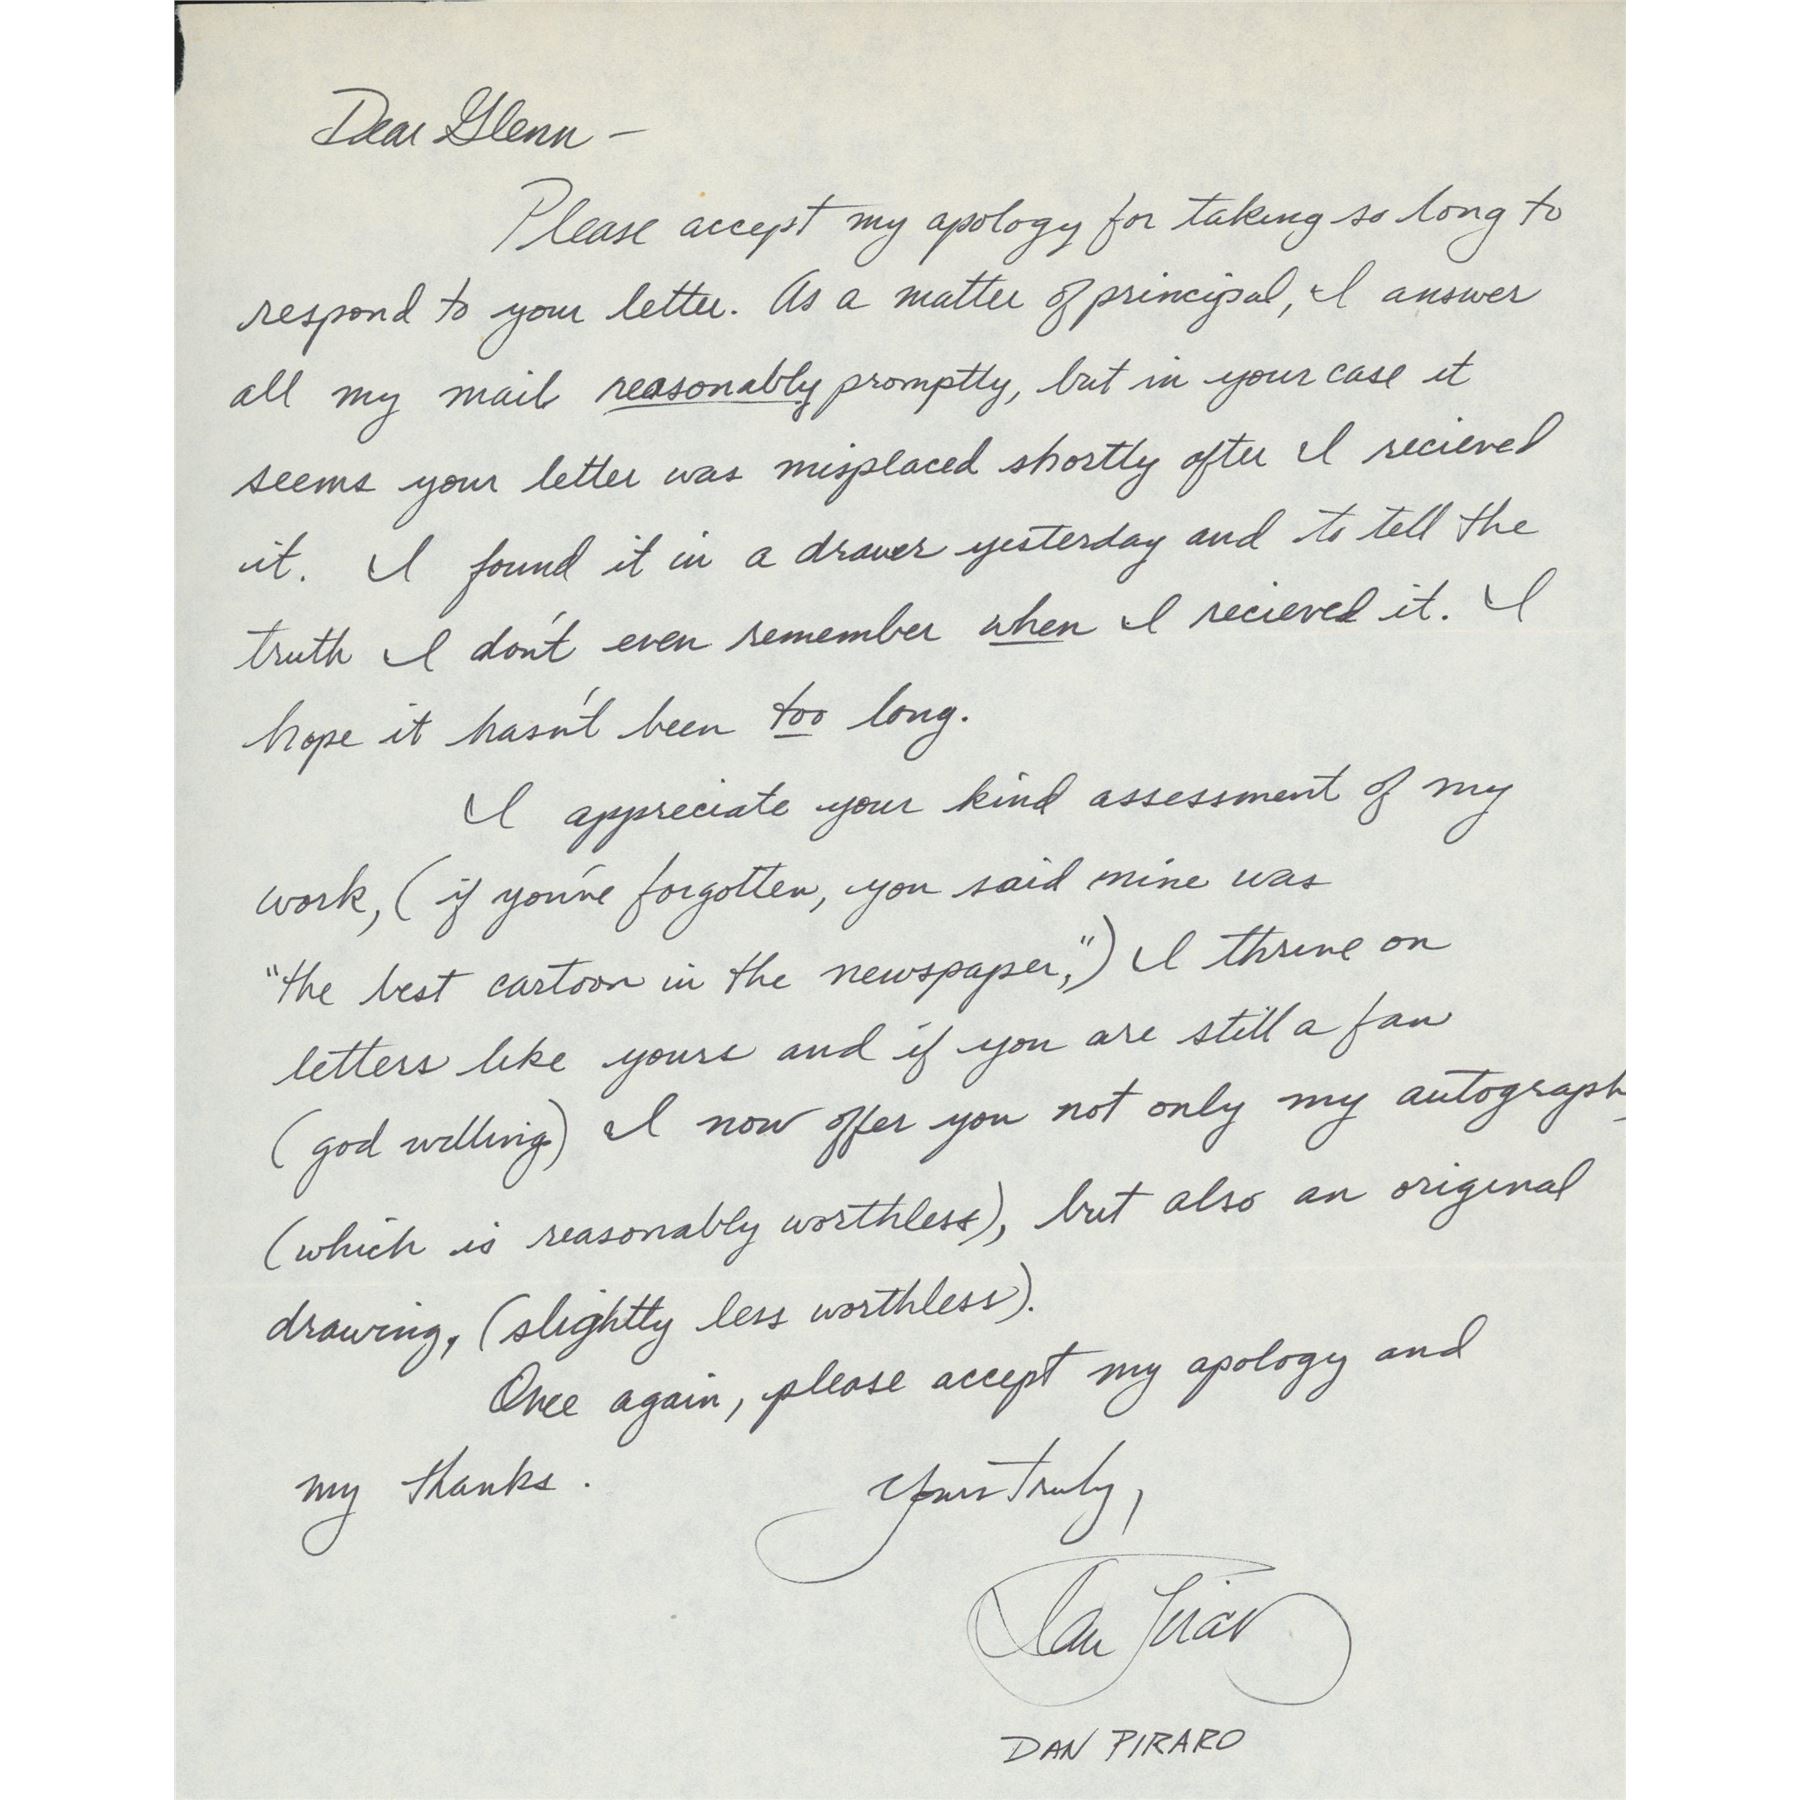 Dear Glenn –
Please accept my apology for taking so long to
respond to your letter. As a matter of principal, I answer
all my mail reasonably promptly, but in your case it
seems your letter was misplaced shortly after I recieved
it. I found it in a drawer yesterday and to tell the
truth I don't even remember when I recieved it. I
hope it hasn't been too long.
I appreciate your kind assessment of my
work, (if you've forgotten, you said mine was
"the best cartoon in the newspaper,") I thrive on
letters like yours and if you are still a fan
(god willing) I now offer you not only my autograph
(which is reasonably worthless), but also an original
drawing, (slightly less worthless).
Once again, please accept my apology and
my thanks.
Yours truly,
Dan Piraro
DAN PIRARO